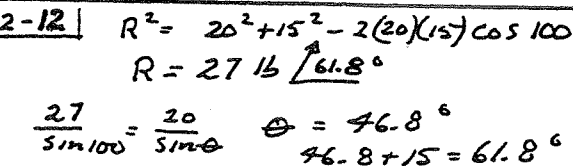 2-12 | R² = 20² + 15² - 2(20)(15) cos 100
R = 27 lb 61.8°
27/sin 100 = 20/sin θ θ = 46.8°
46.8 + 15 = 61.8°